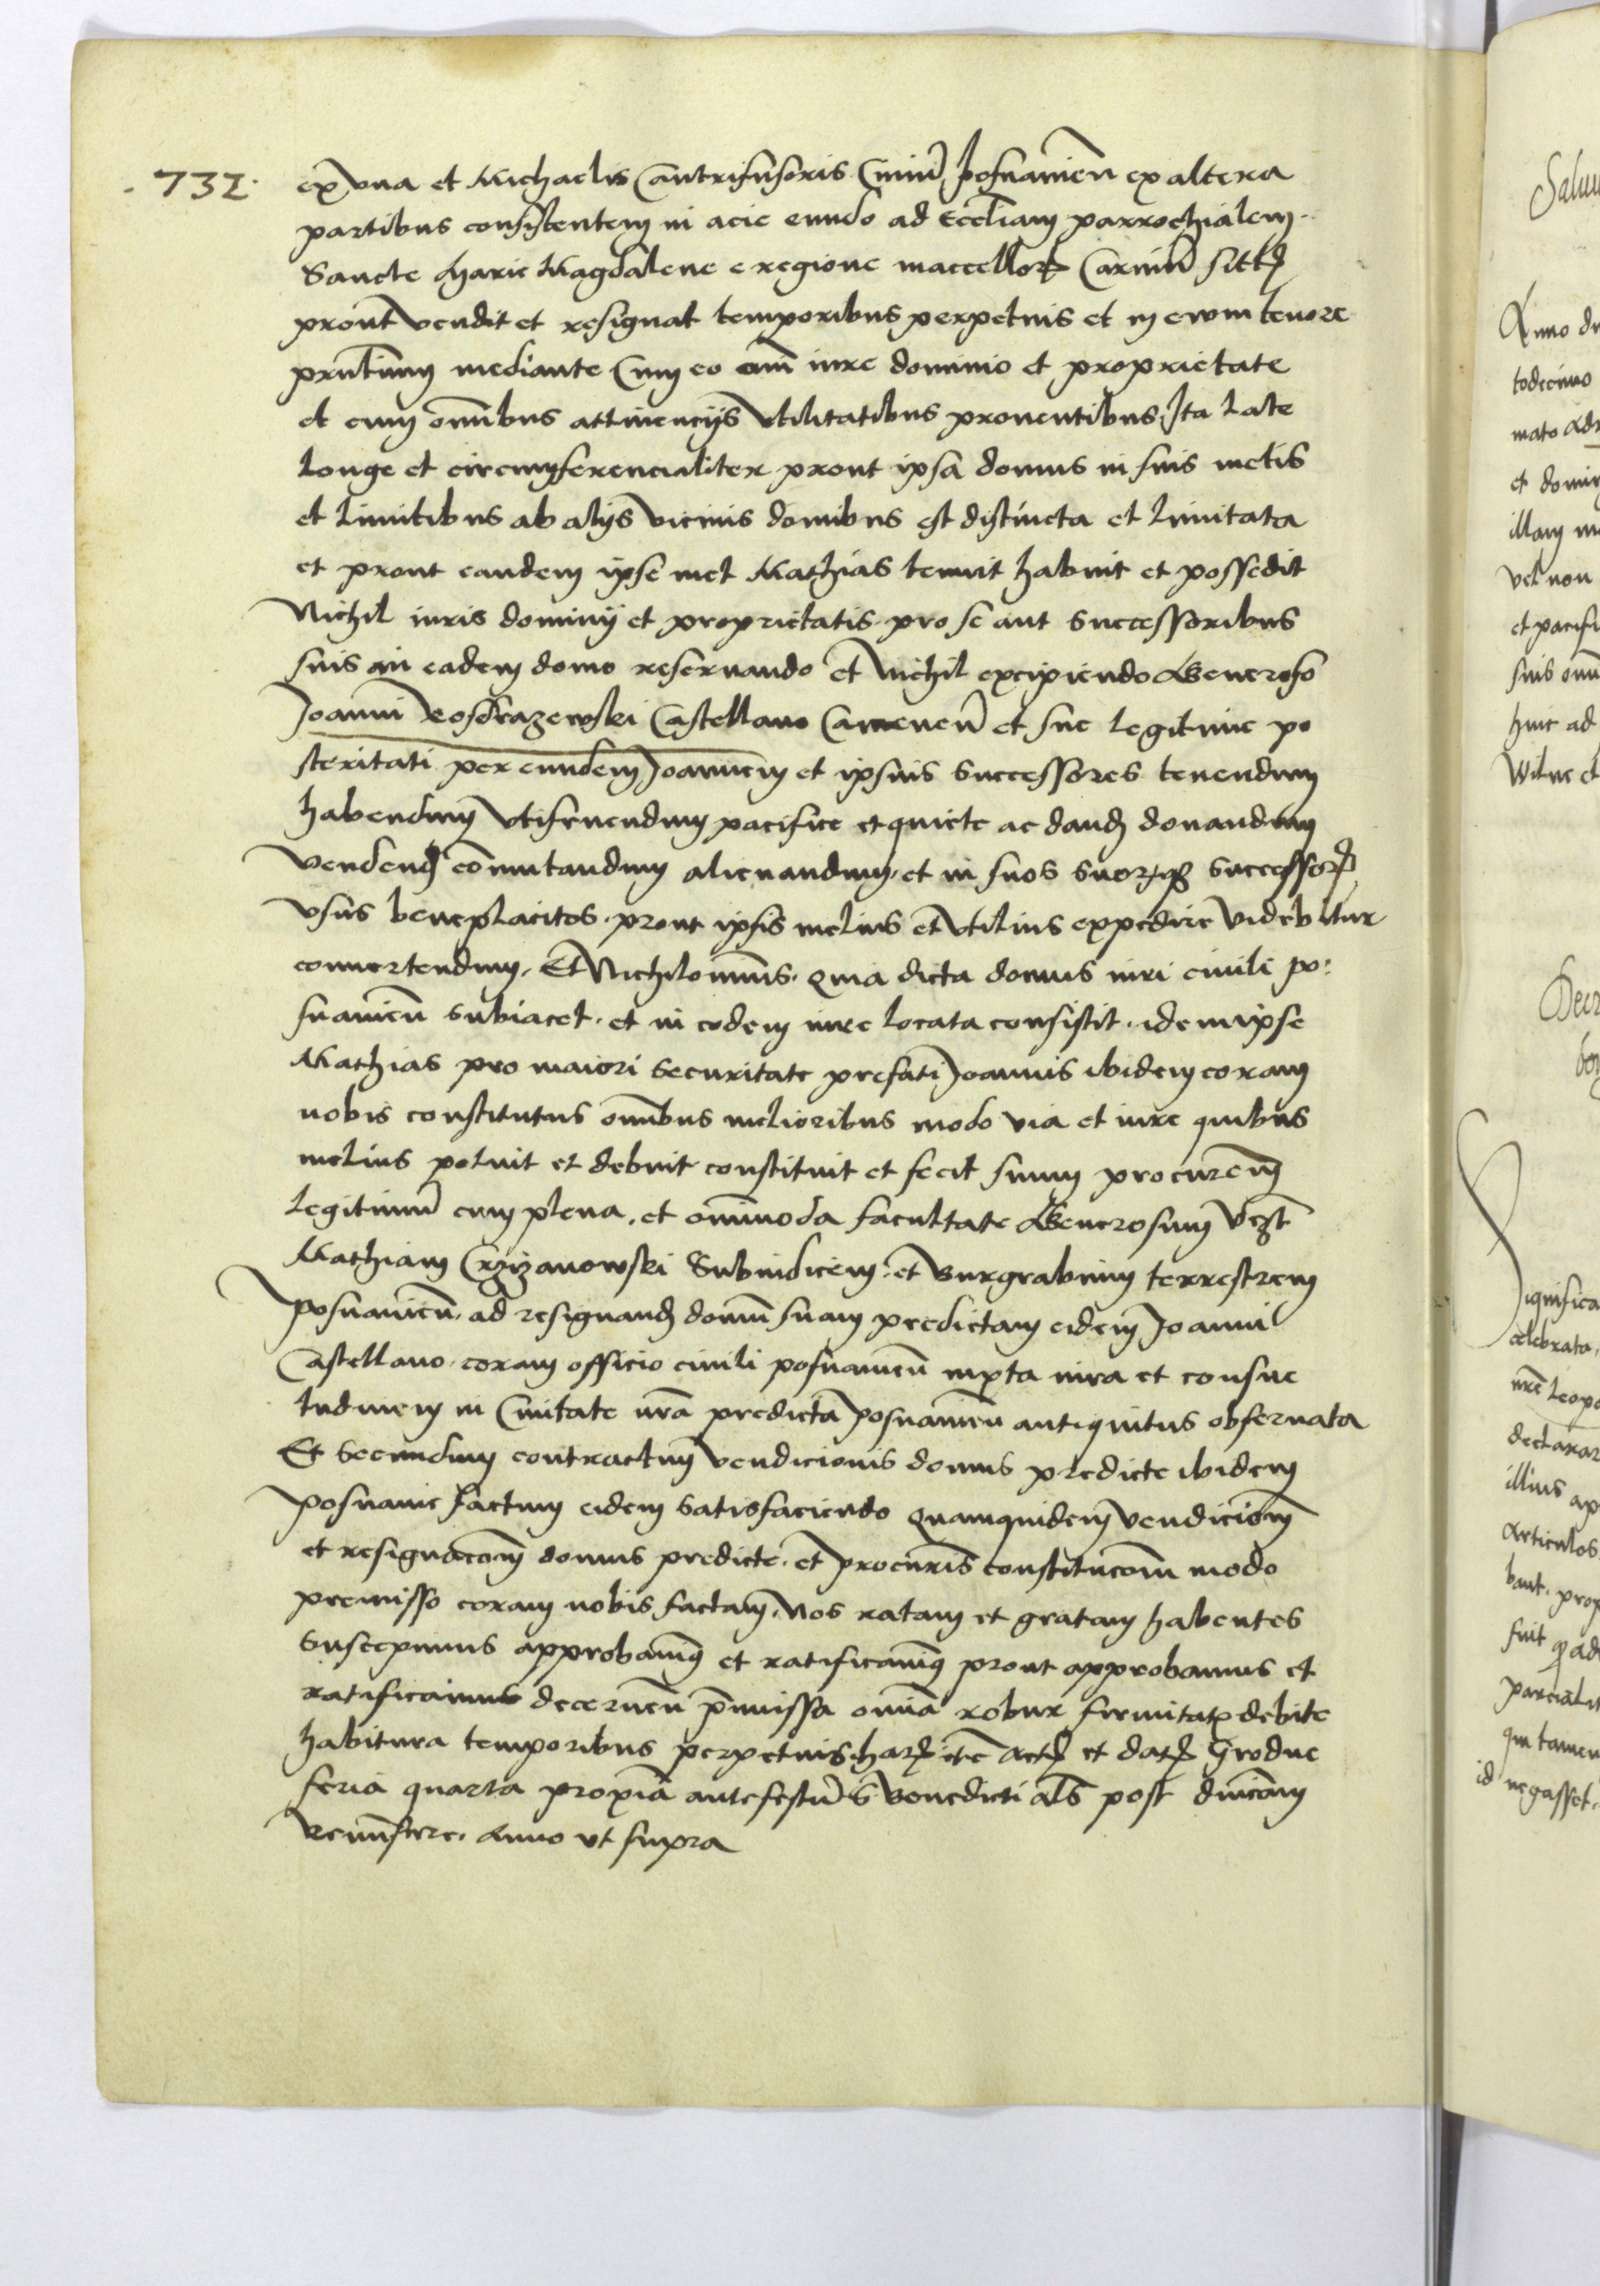 .732.
ex una et Michaelis Cantrifusoris Civiu Posnanien ex altera
partibus consistentem in acie eundo ad Eccliam parrochialem
Sancte Marie Magdalene e regione maccellor Carniu sitt
prout vendit et resignat temporibus perpetuis et in evum tenore
pntium mediante Cum eo om iure dominio et proprietate
et cum omibus attinencijs utilitatibus proventibus Ita late
longe et circumferencialiter prout ipsa domus in suis metis
et limitibus ab alijs vicinis domibus est distincta et limitata
et prout eandem ipse met Mathias tenuit habuit et possedit
Nichil iuris dominij et proprietatis pro se aut successoribus
suis in eadem domo reservando et Nichil excipiendo Generoso
Joanni Rosdrazewski Castellano Camenen et sue legitime po
steritati per eundem Joannem et ipsius successores tenendum
habendum utifruendum pacifice et quiete ac dand donandum
vendend comutandum alienandum et in suos suorq successor
usus beneplacitos prout ipsis melius et utilius expedire videbitur
convertendum. Et Nichilominus quia dicta domus iuri civili po:
snanien subiacet et in eodem iure locata consistit idem ipse
Mathias pro maiori securitate prefati Joannis ibidem coram
nobis constitutus omibus melioribus modo via et iure quibus
melius potuit et debuit constituit et fecit suum procurem
legitimu cum plena et omimoda facultate Generosum
Mathiam Crzizanowski Subiudicem et Burgrabium terrestrem
posnanien ad resignand domu suam predictam eidem Joanni
Castellano coram officio civili posnanien iuxta iura et consue
tudinem in Civitate nra predicta Posnanien antiquitus observata
Et secundum contractum vendicionis domus predicte ibidem
Posnanie factum eidem satisfaciendo Quamquidem vendiciom
et resignacom domus predicte et procuris constitucom modo
premisso coram nobis factam Nos ratam et gratam habentes
suscepimus approbavimq et ratificavimq prout approbamus et
ratificamus decernen pmissa omia robur firmitat debite
habitura temporibus perpetuis har Act et dat Grodne
feria quarta proxia ante festu S Benedicti als post dnicam
Reminscere. Anno ut supra
Anno
todecimo
mato
et
illam
vel non
et pacifi
suis
huic ad
Wilne et
celebrata
declarar
illius ap
Articulos
bant prop
fuit
qui tamen
id negasset